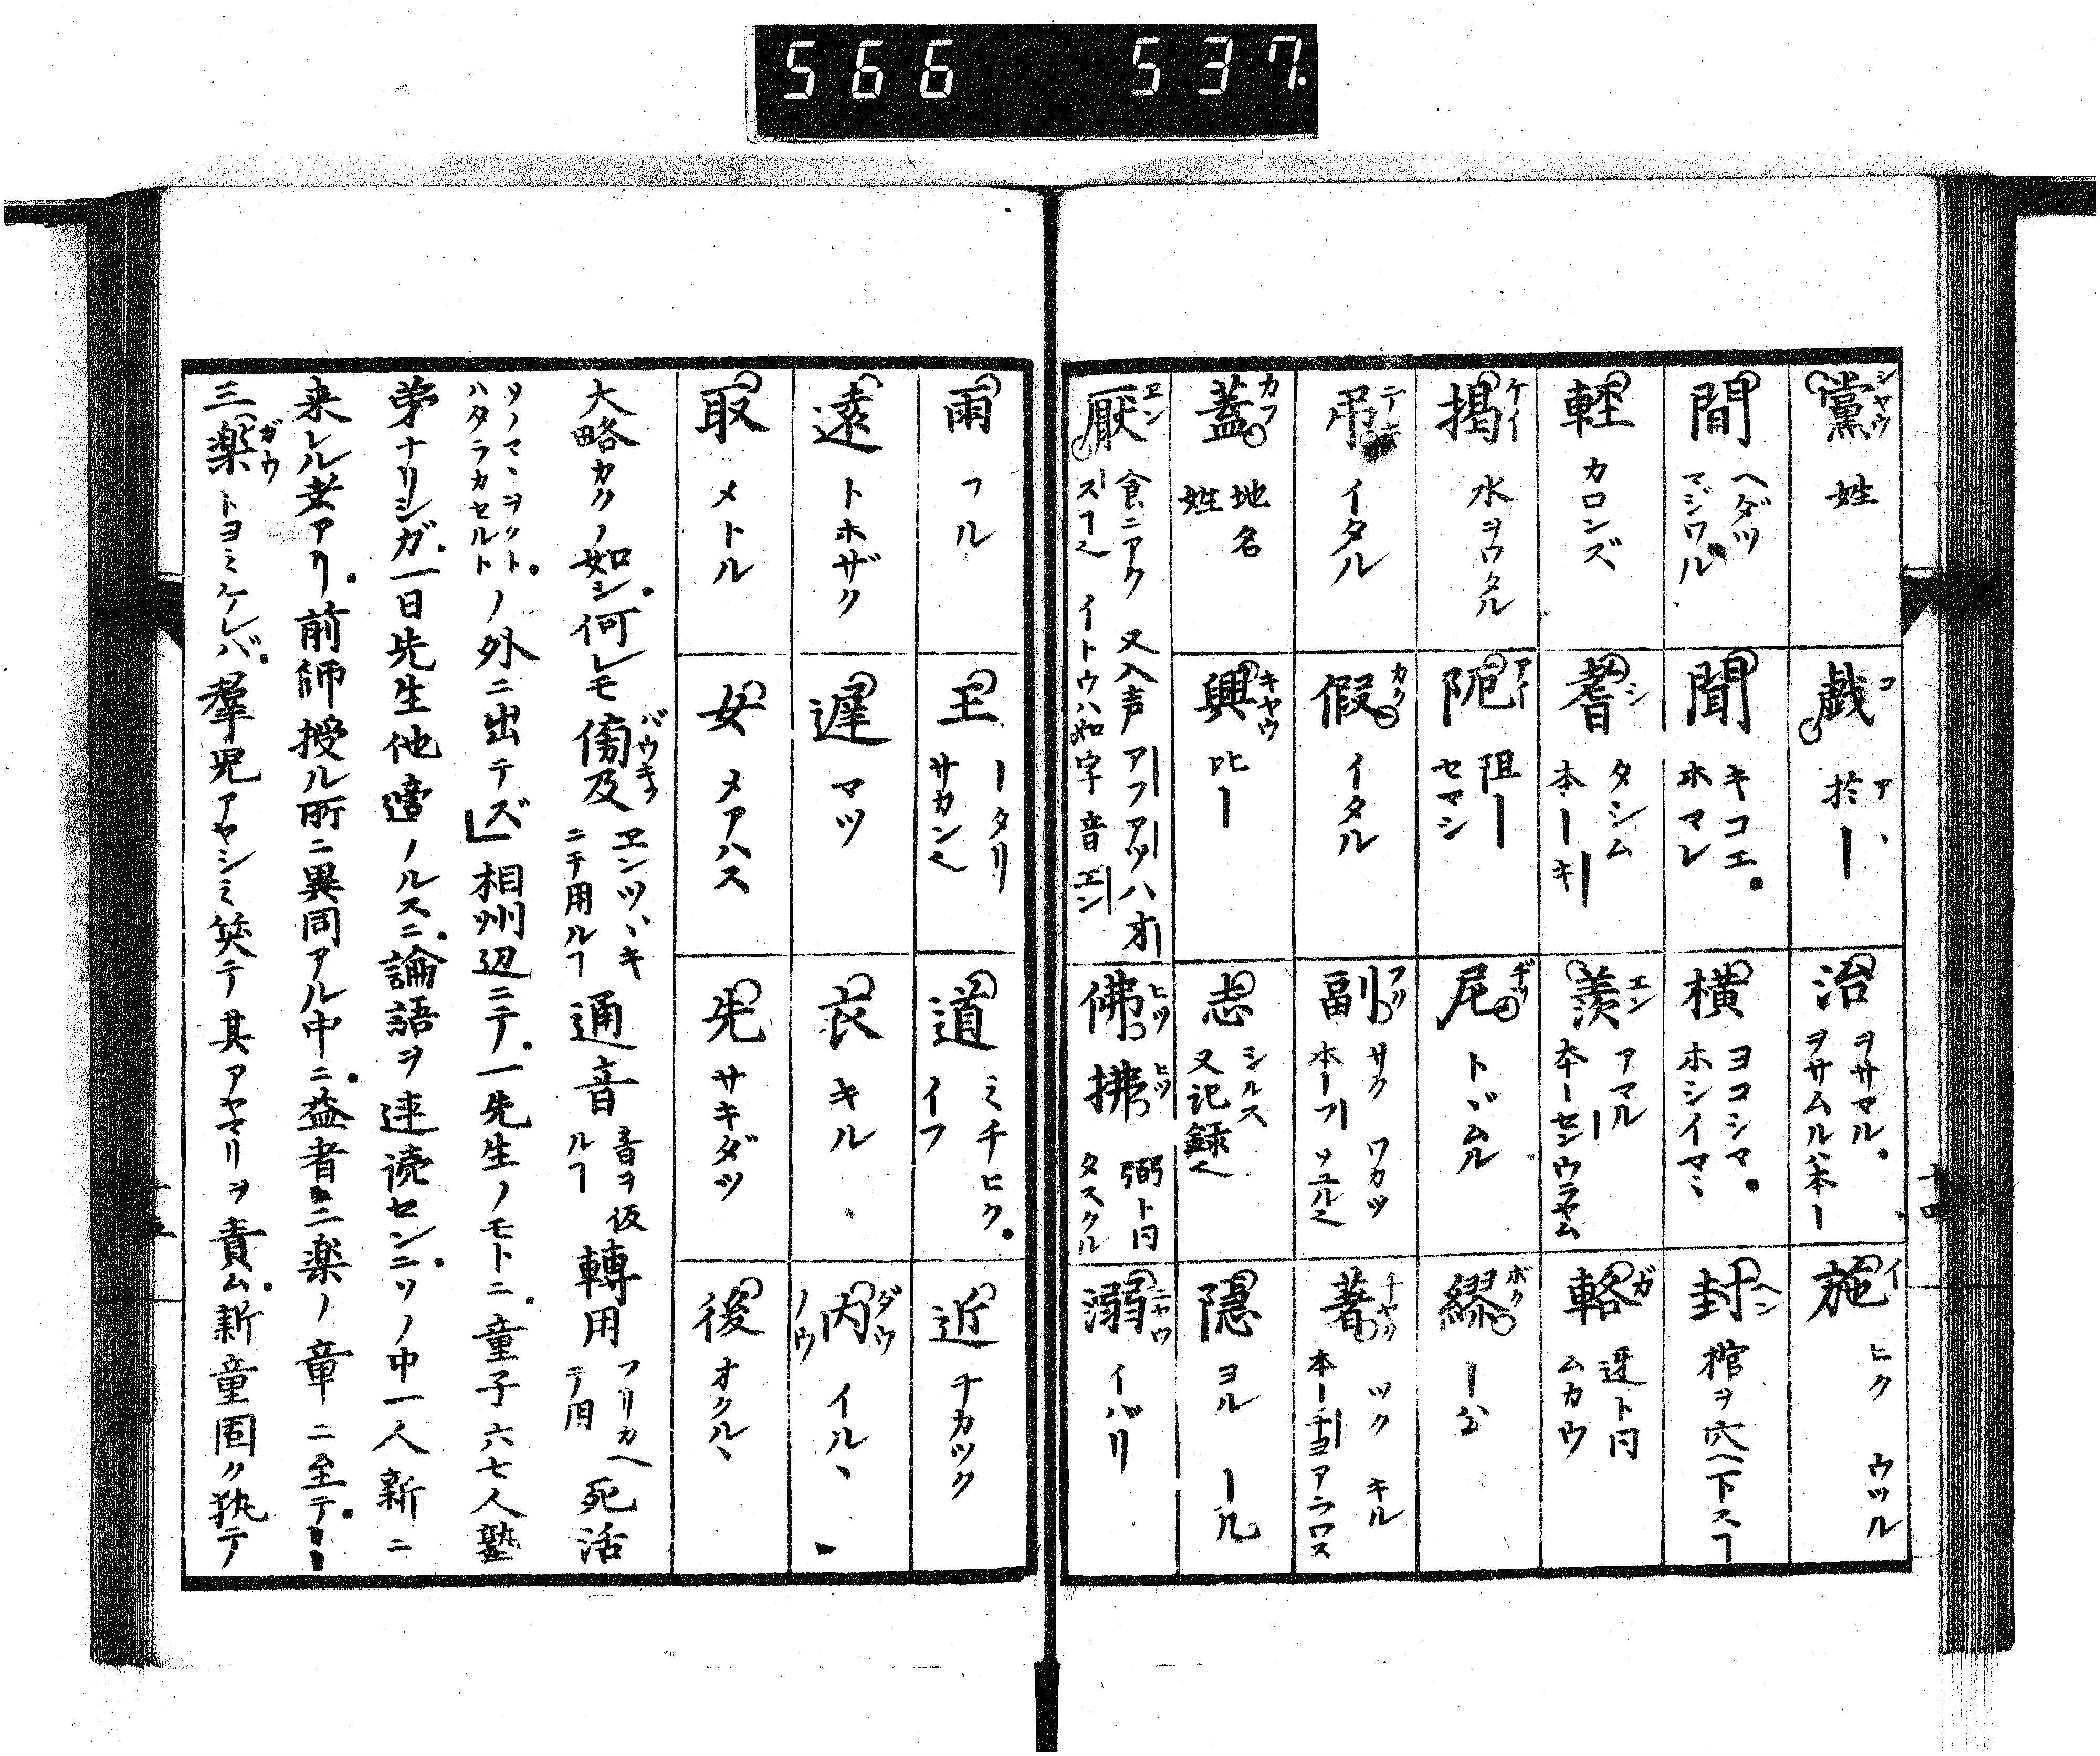 566 537.
黨 シヤウ 姓
戯 コ 於ー アヽ
治 ヲサマル。ヲサムルハ本ー
施 イ ヒク ウツル
間 ヘダツ マジワル
聞 キコエ。ホマレ
横 ヨコシマ。ホシイマヽ
封 ヘン 棺ヲ穴ヘ下スヿ
軽 カロンズ
耆 シ タシム 本ーキ
羨 エン アマル 本ーセンウラヤム
輅 ガ 迓ト同 ムカウ
掲 ケイ 水ヲワタル
阨 アイ 阻ー セマシ
尼 ヂツ トヾムル
繆 ボク ー公
弔 イタル
假 カク イタル
副 フク サク ワカツ 本ーフ ソユル
著 チヤク ツク キル 本ーチヨアラワス
蓋 カフ 地名 姓
興 キヤウ 比ー
志 シルス 又記録
隠 ヨル ール
厭 エン 食ニアク 又入声 アフアツハオスヿ イトウハ如字音エン
佛 ヒツ 拂 ヒツ 弼ト同 タスクル
溺 ニヤウ イバリ
雨 フル
王 ータリ サカン
道 ミチヒク。イフ
近 チカツク
遠 トホザク
遅 マツ
衣 キル
内 ダウ ノウ イルヽ
取 メトル
女 メアハス
先 サキダツ
後 オクルヽ
大略カクノ如シ。何レモ傍及 バウキフ ヱンツヾキニテ用ルヿ 通音 音ヲ仮ルヿ 轉用 フリカヘテ用 死活
ソノマヽヲクト。ハタラカセルト ノ外ニ出テズ」相州辺ニテ。一先生ノモトニ。童子六七人塾
弟ナリシガ。一日先生他適ノルスニ。論語ヲ連読センニ。ソノ中一人新ニ
来レル者アリ。前師授ル所ニ異同アル中ニ。益者三楽ノ章ニ至テ。
三楽 ガウ トヨミケレバ。羣児アヤシミ笑テ其アヤマリヲ責ム。新童固ク執テ